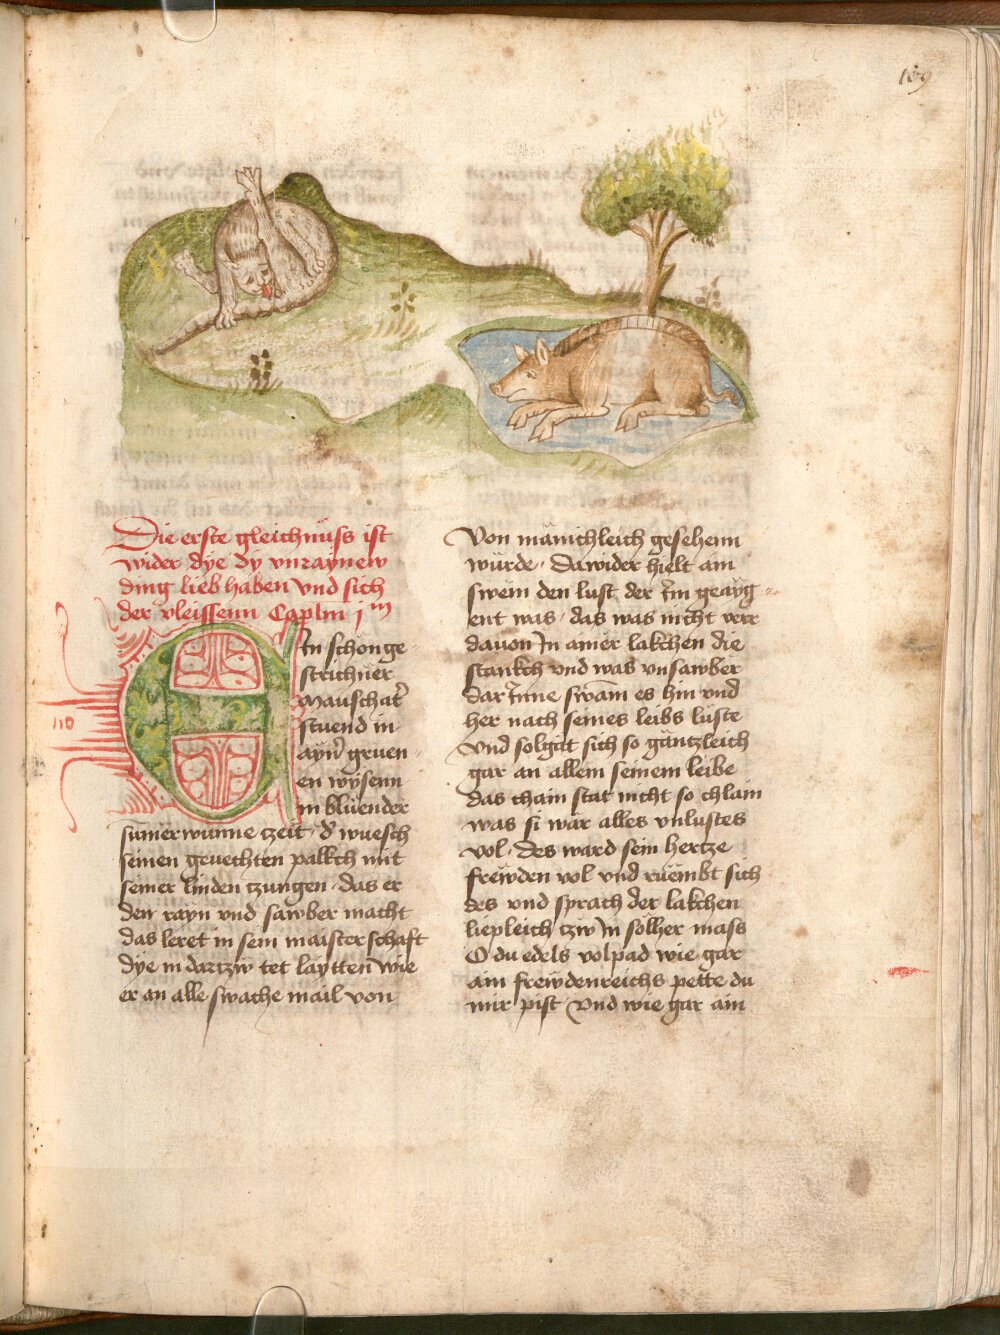 169
Die erste gleichnuss ist
wider dye dy vnraynew
ding lieb haben vnd sich
der vleissenn Caplm j m
110
Ein schon ge
strichner
Mauschatz
stuend in
ayner gruen
en wysenn
in bluender
sumer wunne tzeit d wuesch
seinen geuechten palkch mit
seiner linden tzungen das er
den rayn vnd sawber macht
das leret in sein maisterschaft
dye in dartzw tet laytten wie
er an alle swache mail von
Von manichleich gesehenn
wurde Dawider hielt ain
swein den lust der im geayg
ent was das was nicht verr
dauon In ainer lakchen die
stankch vnd was vnsawber
dar Inne swam es hin vnd
her nach seines leibs luste
vnd solgat sich so gantzleich
gar an allem seinem leibe
das chain stat nicht so chlain
was si war alles vnlustes
vol des ward sein hertze
frewden vol vnd ruembt sich
des vnd sprach der lakchen
liepleich tzw in solher mass
O du edels volpad wie gar
ain frewdenreichs pette du
mir pist Vnd wie gar ain